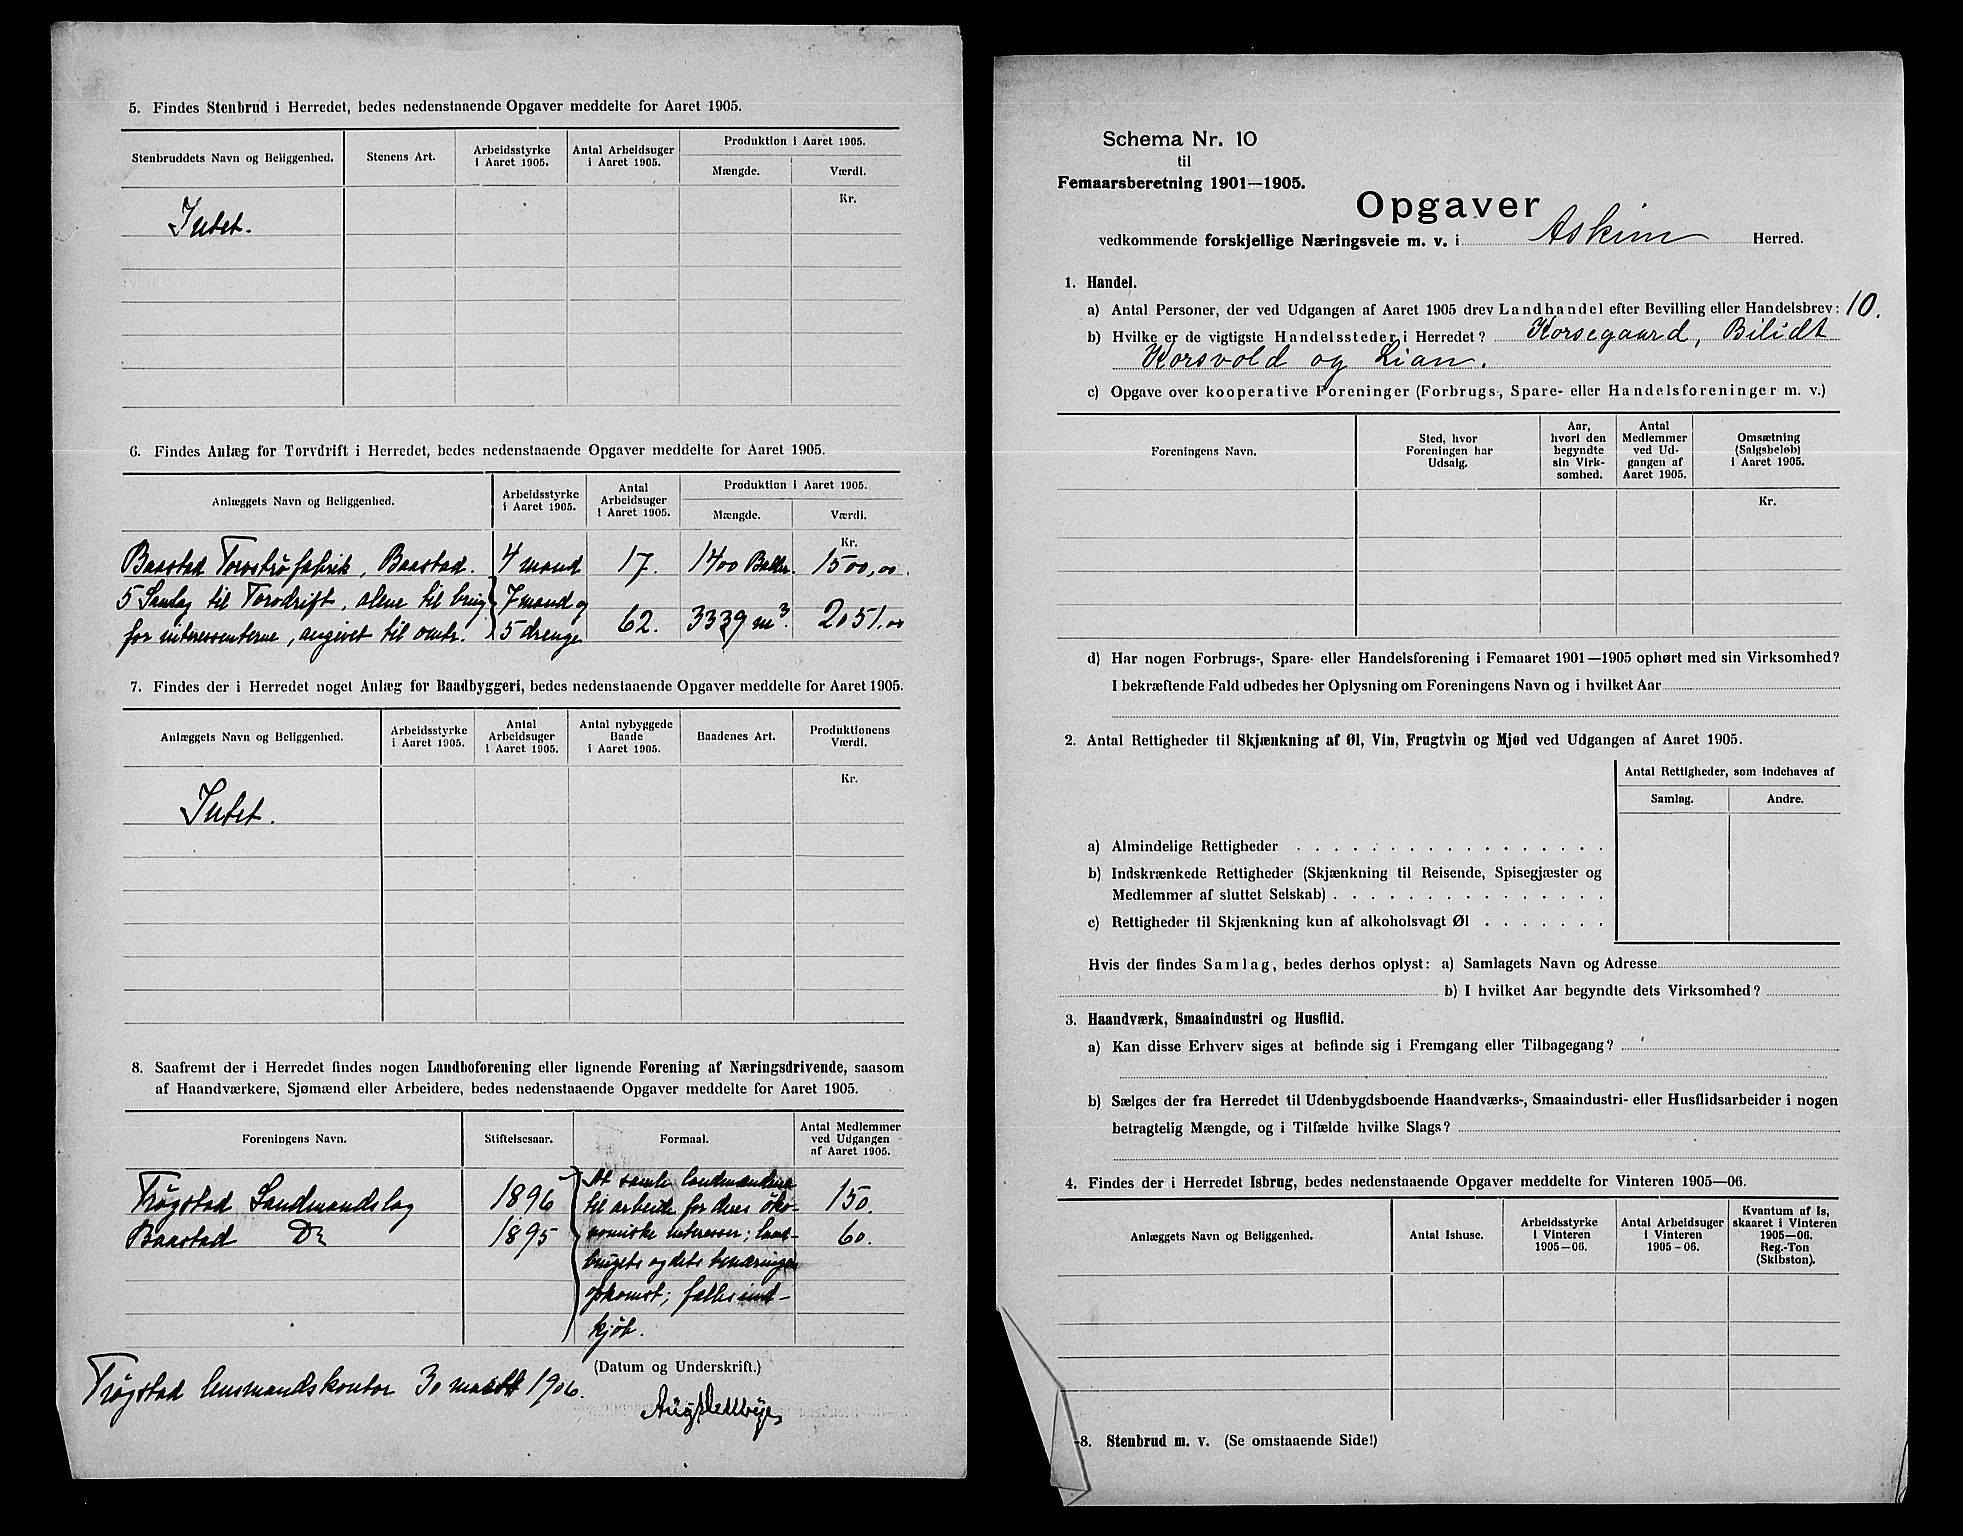 5. Findes Stenbrud i Herredet, bedes nedenstaaende Opgaver meddelte for Aaret 1905.
Stenbruddets Navn og Beliggenhed. Stenens Art. Arbeidsstyrke i Aaret 1905. Antal Arbeidsuger i Aaret 1905. Produktion i Aaret 1905.
Mængde. Værdi.
Kr.
Intet.
6. Findes Anlæg for Torvdrift i Herredet, bedes nedenstaaende Opgaver meddelte for Aaret 1905.
Anlæggets Navn og Beliggenhed. Arbeidsstyrke i Aaret 1905. Antal Arbeidsuger i Aaret 1905. Produktion i Aaret 1905.
Mængde. Værdi.
Kr.
Baastad Torvstrøfabrik, Baastad. 4 mand 17. 1400 Baller. 1500,00.
5 Samlag til Torvdrift, alene til brug 7 mand og
for interessenterne, angivet til omtr. 5 drenge 62. 3339 m³. 2051.00
7. Findes der i Herredet noget Anlæg for Baadbyggeri, bedes nedenstaaende Opgaver meddelte for Aaret 1905.
Anlæggets Navn og Beliggenhed. Arbeidsstyrke i Aaret 1905. Antal Arbeidsuger i Aaret 1905. Antal nybyggede Baade i Aaret 1905. Baadenes Art. Produktionens Værdi.
Kr.
Intet.
8. Saafremt der i Herredet findes nogen Landboforening eller lignende Forening af Næringsdrivende, saasom
af Haandværkere, Sjømænd eller Arbeidere, bedes nedenstaaende Opgaver meddelte for Aaret 1905.
Foreningens Navn. Stiftelsesaar. Formaal. Antal Medlemmer ved Udgangen af Aaret 1905.
At samle landmændene
Trøgstad Landmandslag 1896 til arbeide for deres øko- 150.
Baastad Do 1895 nomiske interesser; land- 60.
brugets og dets binæringers
opkomst; fælles ind-
kjøb.
(Datum og Underskrift.)
Trøgstad lensmandskontor 30 marts 1906.
Schema Nr. 10
til
Femaarsberetning 1901—1905.
Opgaver
vedkommende forskjellige Næringsveie m. v. i Askim Herred.
1. Handel.
a) Antal Personer, der ved Udgangen af Aaret 1905 drev Landhandel efter Bevilling eller Handelsbrev: 10.
b) Hvilke er de vigtigste Handelssteder i Herredet? Korsegaard, Bilidt
Korsvold og Lian.
c) Opgave over kooperative Foreninger (Forbrugs-, Spare- eller Handelsforeninger m. v.)
Foreningens Navn. Sted, hvor Foreningen har Udsalg. Aar, hvori den begyndte sin Virksomhed. Antal Medlemmer ved Udgangen af Aaret 1905. Omsætning (Salgsbeløb) i Aaret 1905.
Kr.
d) Har nogen Forbrugs-, Spare- eller Handelsforening i Femaaret 1901—1905 ophørt med sin Virksomhed?
I bekræftende Fald udbedes her Oplysning om Foreningens Navn og i hvilket Aar
2. Antal Rettigheder til Skjænkning af Øl, Vin, Frugtvin og Mjød ved Udgangen af Aaret 1905.
Antal Rettigheder, som indehaves af
Samlag. Andre.
a) Almindelige Rettigheder
b) Indskrænkede Rettigheder (Skjænkning til Reisende, Spisegjæster og
Medlemmer af sluttet Selskab)
c) Rettigheder til Skjænkning kun af alkoholsvagt Øl
Hvis der findes Samlag, bedes derhos oplyst: a) Samlagets Navn og Adresse
b) I hvilket Aar begyndte dets Virksomhed?
3. Haandværk, Smaaindustri og Husflid.
a) Kan disse Erhverv siges at befinde sig i Fremgang eller Tilbagegang?
b) Sælges der fra Herredet til Udenbygdsboende Haandværks-, Smaaindustri- eller Husflidsarbeider i nogen
betragtelig Mængde, og i Tilfælde hvilke Slags?
4. Findes der i Herredet Isbrug, bedes nedenstaaende Opgaver meddelte for Vinteren 1905—06.
Anlæggets Navn og Beliggenhed. Antal Ishuse. Arbeidsstyrke i Vinteren 1905—06. Antal Arbeidsuger i Vinteren 1905-06. Kvantum af Is, skaaret i Vinteren 1905—06. Reg.-Ton (Skibston).
-8. Stenbrud m. v. (Se omstaaende Side!)